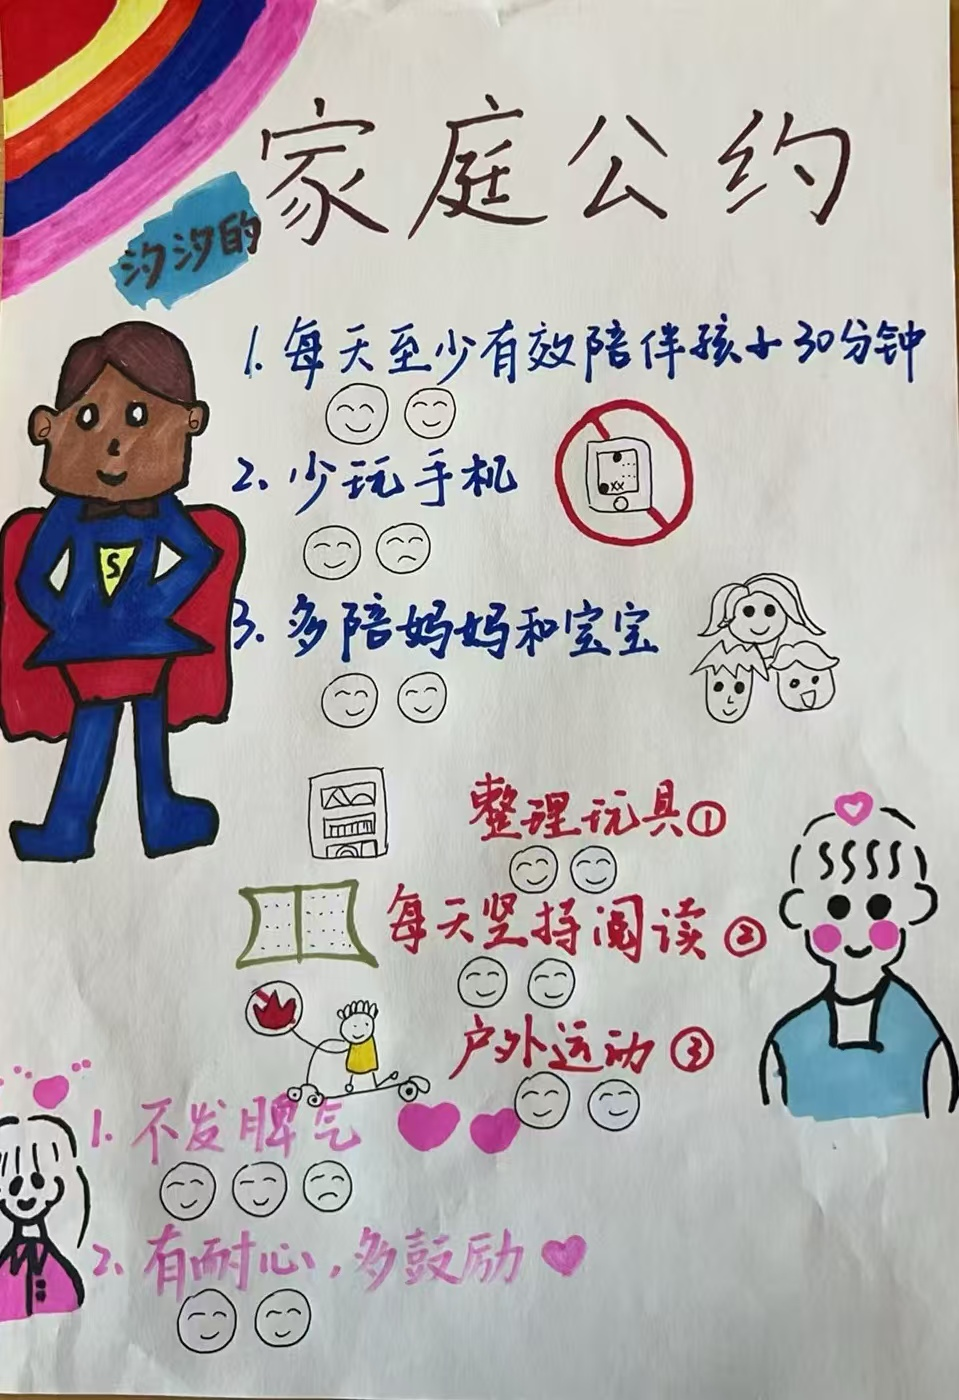 家庭公约
汐汐的
1. 每天至少有效陪伴孩子30分钟
2. 少玩手机
xx
S
3. 多陪妈妈和宝宝
整理玩具①
每天坚持阅读②
户外运动③
1. 不发脾气
2. 有耐心,多鼓励